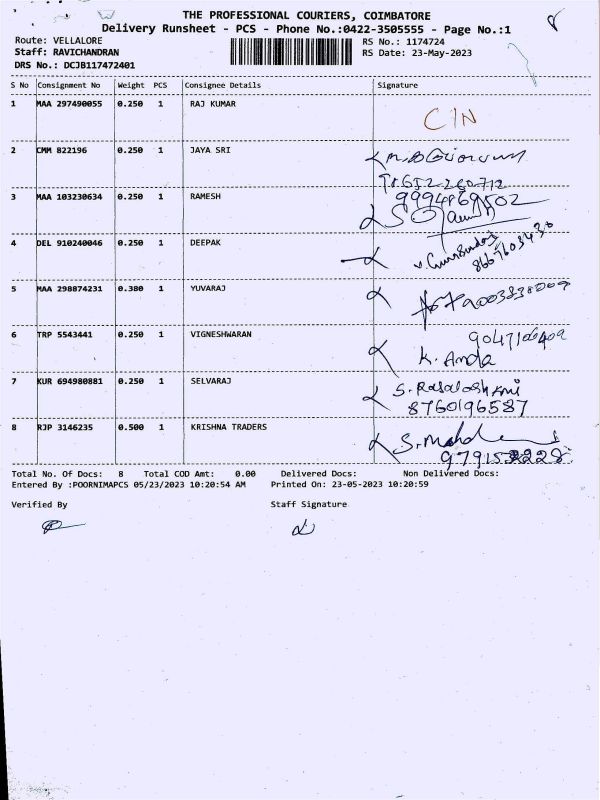 THE PROFESSIONAL COURIERS, COIMBATORE
Delivery Runsheet - PCS - Phone No.:0422-3505555 - Page No.:1
Route: VELLALORE RS No.: 1174724
Staff: RAVICHANDRAN RS Date: 23-May-2023
DRS No.: DCJB117472401
S No Consignment No Weight PCS Consignee Details Signature
1 MAA 297490055 0.250 1 RAJ KUMAR
C/N
2 CMM 822196 0.250 1 JAYA SRI
3 MAA 103230634 0.250 1 RAMESH
4 DEL 910240046 0.250 1 DEEPAK
5 MAA 298874231 0.380 1 YUVARAJ
6 TRP 5543441 0.250 1 VIGNESHWARAN
K. Anda
7 KUR 694980881 0.250 1 SELVARAJ
8760196587
8 RJP 3146235 0.500 1 KRISHNA TRADERS
Total No. Of Docs: 8 Total COD Amt: 0.00 Delivered Docs: Non Delivered Docs:
Entered By :POORNIMAPCS 05/23/2023 10:20:54 AM Printed On: 23-05-2023 10:20:59
Verified By Staff Signature